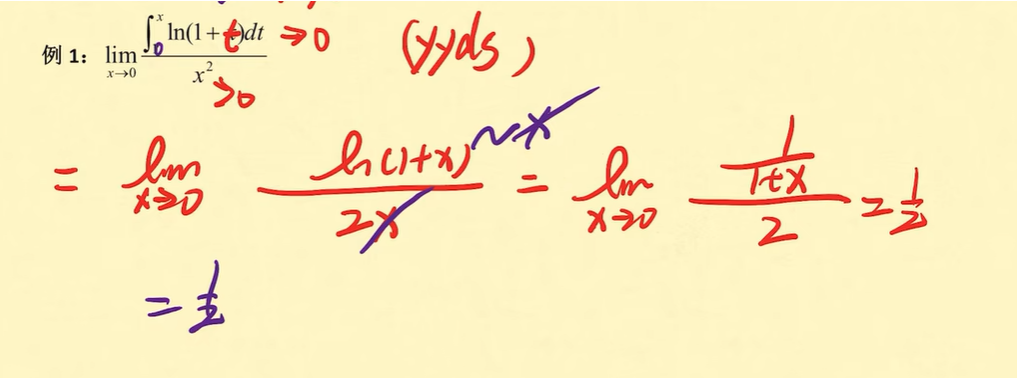 例 1: lim_{x→0} \frac{∫_0^x ln(1+t)dt}{x^2} →0 (yyds)
→0
= lim_{x→0} \frac{ln(1+x)}{2x} ~x = lim_{x→0} \frac{\frac{1}{1+x}}{2} = \frac{1}{2}
= \frac{1}{2}